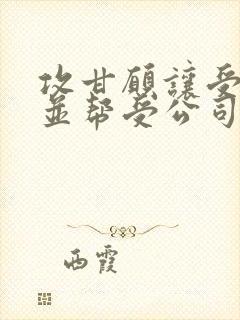 攻甘願讓受
並幫受公司
西霞